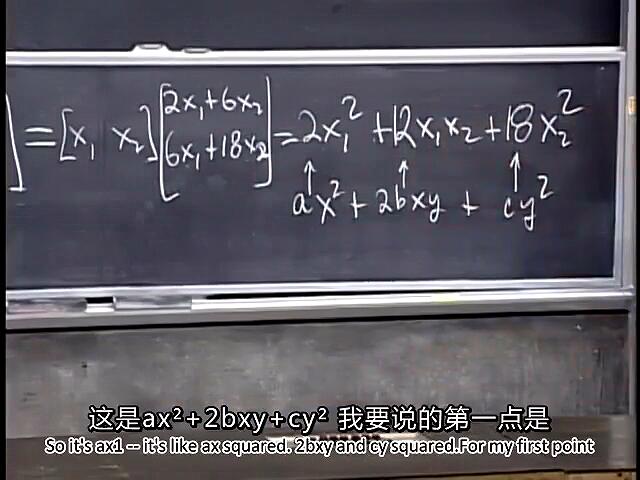 ] = [x₁ x₂] [2x₁+6x₂ 6x₁+18x₂] = 2x₁² + 12x₁x₂ + 18x₂²
↑ ↑ ↑
ax² + 2bxy + cy²
这是ax²+2bxy+cy² 我要说的第一点是
So it's ax1 -- it's like ax squared. 2bxy and cy squared.For my first point